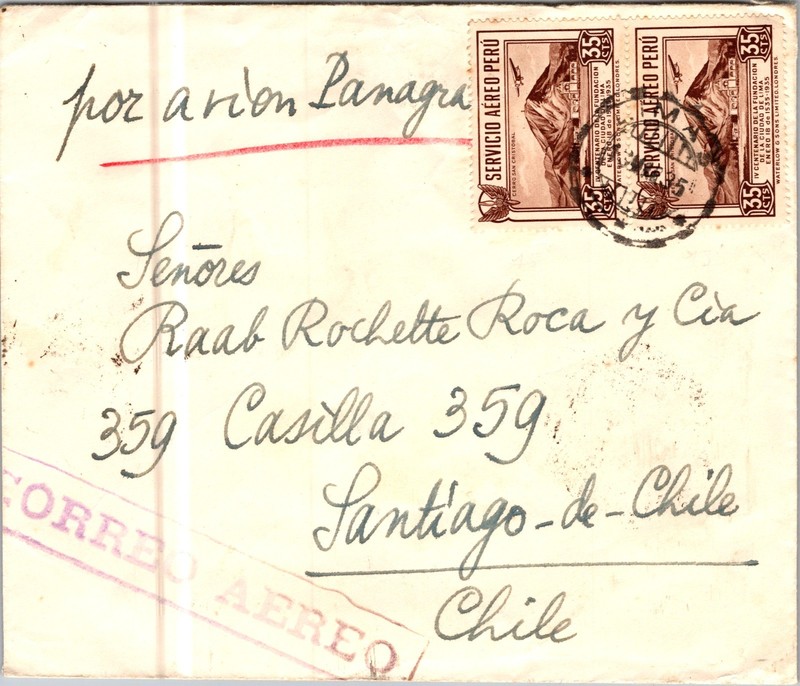 por avion Panagra
SERVICIO AÉREO PERÚ
35 CTS
CERRO SAN CRISTOBAL
IV CENTENARIO DE LA FUNDACION
DE LA CIUDAD DE LIMA
ENERO 18 de 1535-1935
WATERLOW & SONS LIMITED, LONDRES.
35 CTS
SERVICIO AÉREO PERÚ
35 CTS
IV CENTENARIO DE LA FUNDACION
DE LA CIUDAD DE LIMA
ENERO 18 de 1535-1935
WATERLOW & SONS LIMITED, LONDRES.
35 CTS
Señores
Raab Rochette Roca y Cia
359 Casilla 359
Santiago-de-Chile
Chile
CORREO AEREO